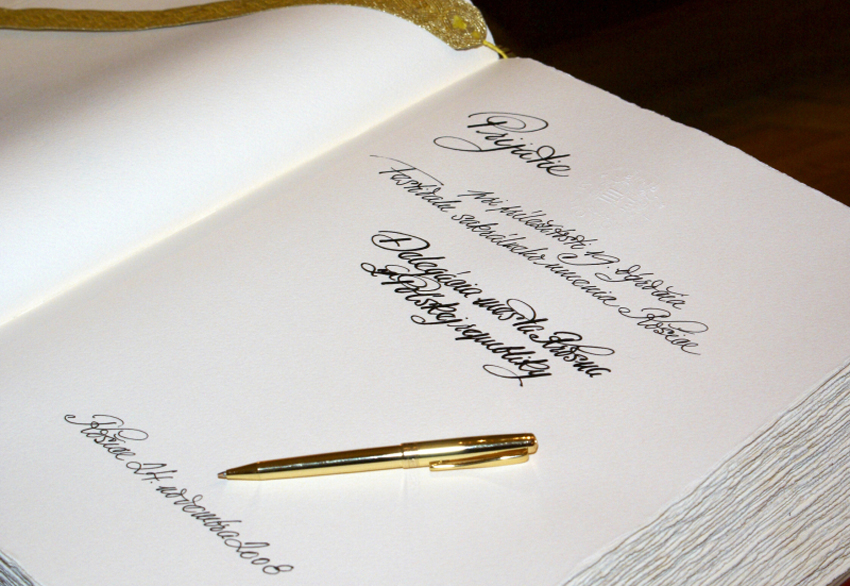 Prijatie
pri príležitosti 19. výročia
Festivalu sakrálneho umenia Košice
Delegácia mesta Krosna
z Poľskej republiky
Košice 24. novembra 2008